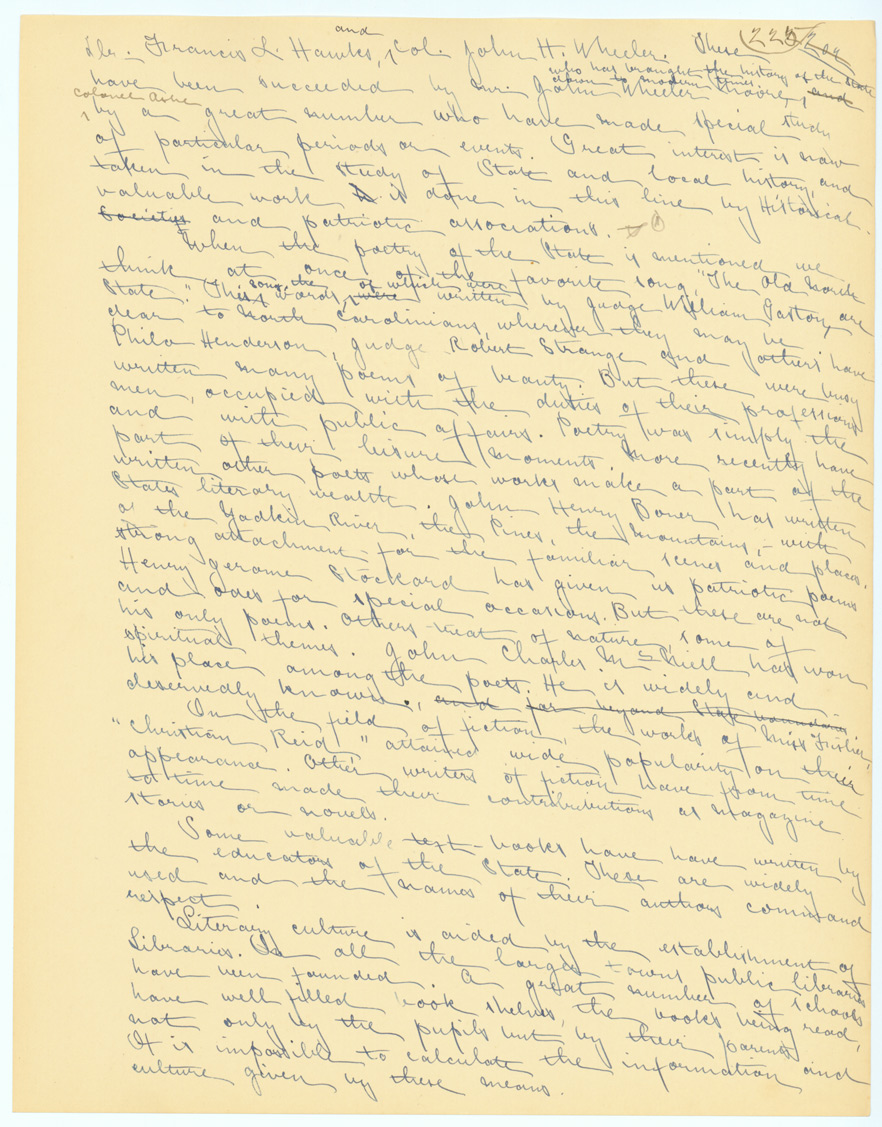 and
Dr. Francis L. Hawks, Col. John H. Wheeler. These 225
who has brought the history of the State
down to modern times
have been succeeded by Mr. John Wheeler Moore, and
Colonel Ashe
by a great number who have made special study
of particular periods or events. Great interest is now
taken in the study of State and local history, and
valuable work is done in this line by Historical
Societies and patriotic associations.
When the poetry of the State is mentioned we
think at once of the favorite song, "The Old North
song, the of which were
State." This words, were written by Judge William Gaston, are
dear to North Carolinians, wherever they may be.
Philo Henderson, Judge Robert Strange and others have
written many poems of beauty. But these were busy
men, occupied with the duties of their professions
and with public affairs. Poetry was simply the
part of their leisure moments. More recently have
written other poets whose works make a part of the
States literary wealth. John Henry Boner has written
of the Yadkin River, the Pines, the Mountains, - with
strong attachment for the familiar scenes and places.
Henry Jerome Stockard has given us patriotic poems
and odes for special occasions. But these are not
his only poems. Others treat of nature, some of
spiritual themes. John Charles McNeill has won
his place among the poets. He is widely and
deservedly known, and far beyond State boundaries.
In the field of fiction, the works of Miss Fisher,
"Christian Reid" attained wide popularity on their
appearance. Other writers of fiction have from time
to time made their contributions as magazine
stories or novels.
Some valuable text-books have have written by
the educators of the State. These are widely
used and the names of their authors command
respect.
Literary culture is aided by the establishment of
Libraries. In all the larger towns public libraries
have been founded. A great number of schools
have well filled book shelves, the books being read,
not only by the pupils but by their parents.
It is impossible to calculate the information and
culture given by these means.